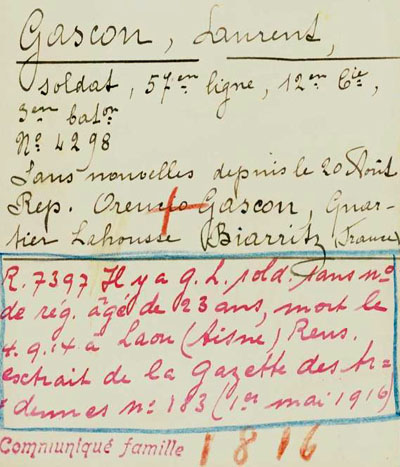 Gascon, Laurent,
soldat, 57em ligne, 12em Cie,
3em baton
No 4298
Sans nouvelles depuis le 20 Août
Rep. Orencio Gascon, Quar-
tier Lahousse (Biarritz (France)
R. 7397 Il y a g. L. sold. sans no
de rég. âgé de 23 ans, mort le
4.9.14 à Laon (Aisne) Rens.
extrait de la Gazette des Ar=
=dennes no 183 (1er mai 1916)
Communiqué famille 1816